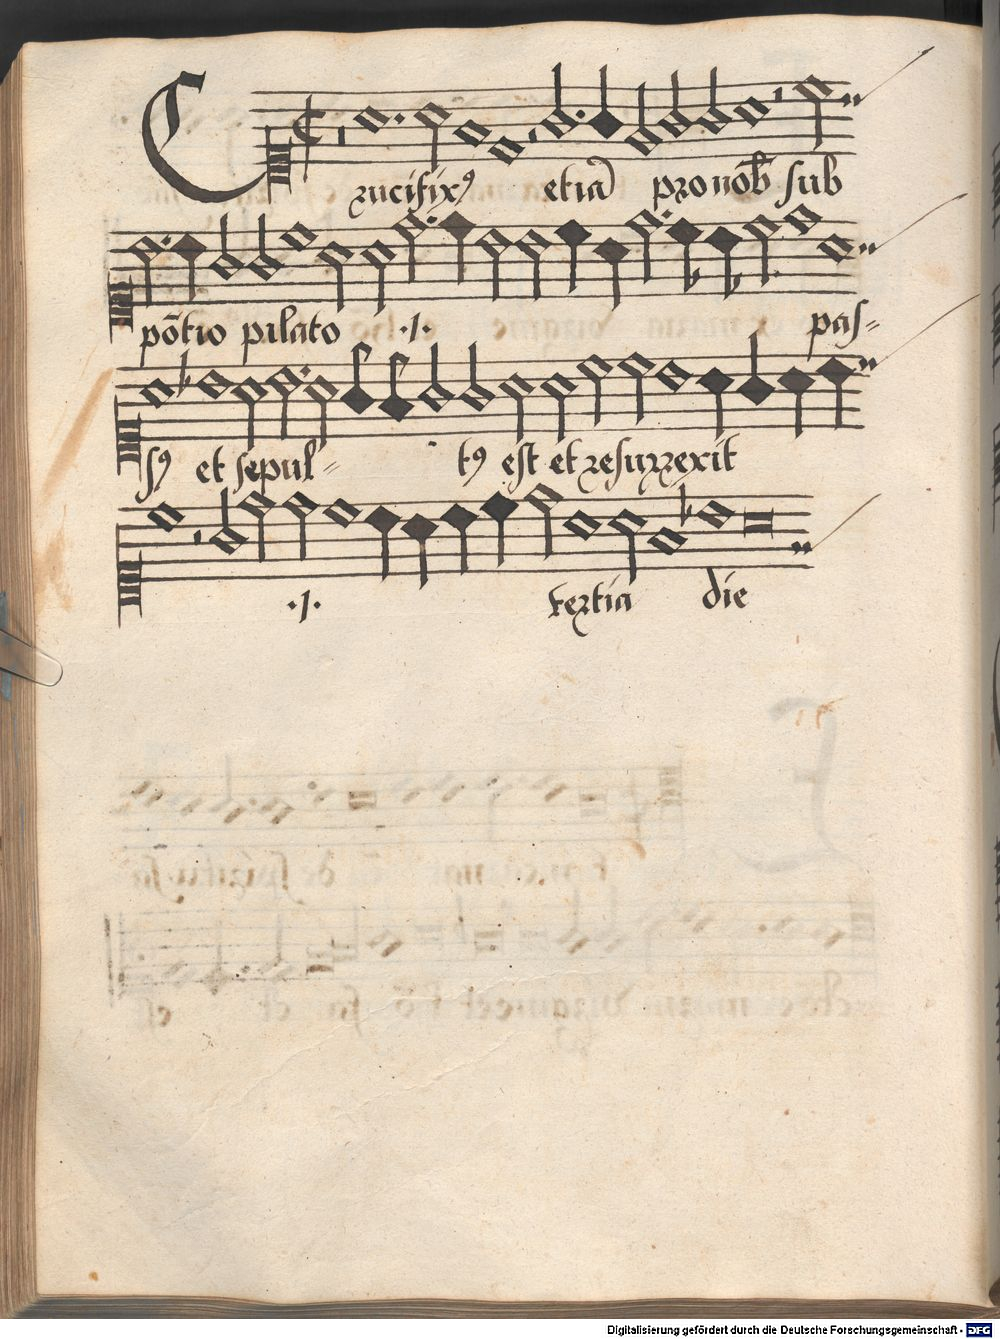 Crucifixꝰ etiā pro nob̄ sub
pōtio pilato ·I· pas=
sꝰ et sepul= tꝰ est et resurrexit
·I· tertia die
Digitalisierung gefördert durch die Deutsche Forschungsgemeinschaft - DFG